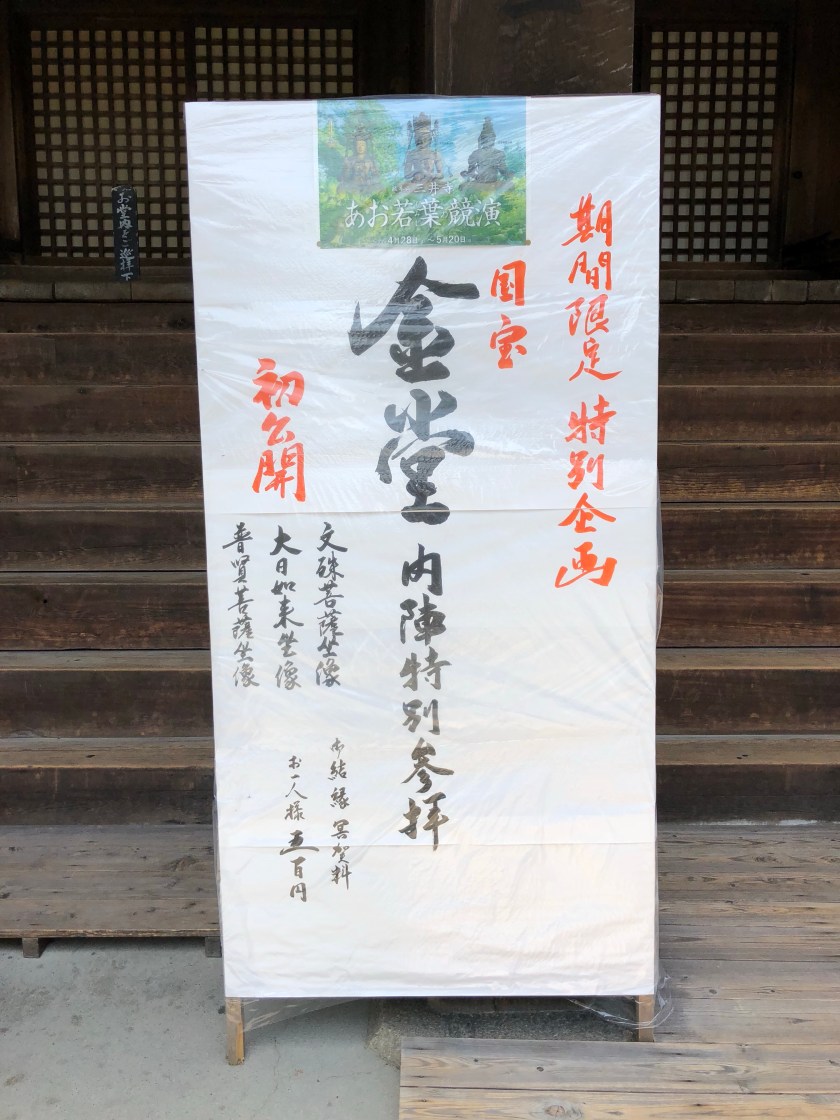 三井寺
あお若葉の競演
4月28日~5月20日
期間限定 特別企画
国宝
金堂 内陣特別参拝
初公開
文殊菩薩坐像
大日如来坐像
普賢菩薩坐像
御結縁 冥賀料
お一人様 五百円
お堂内をご巡拝下